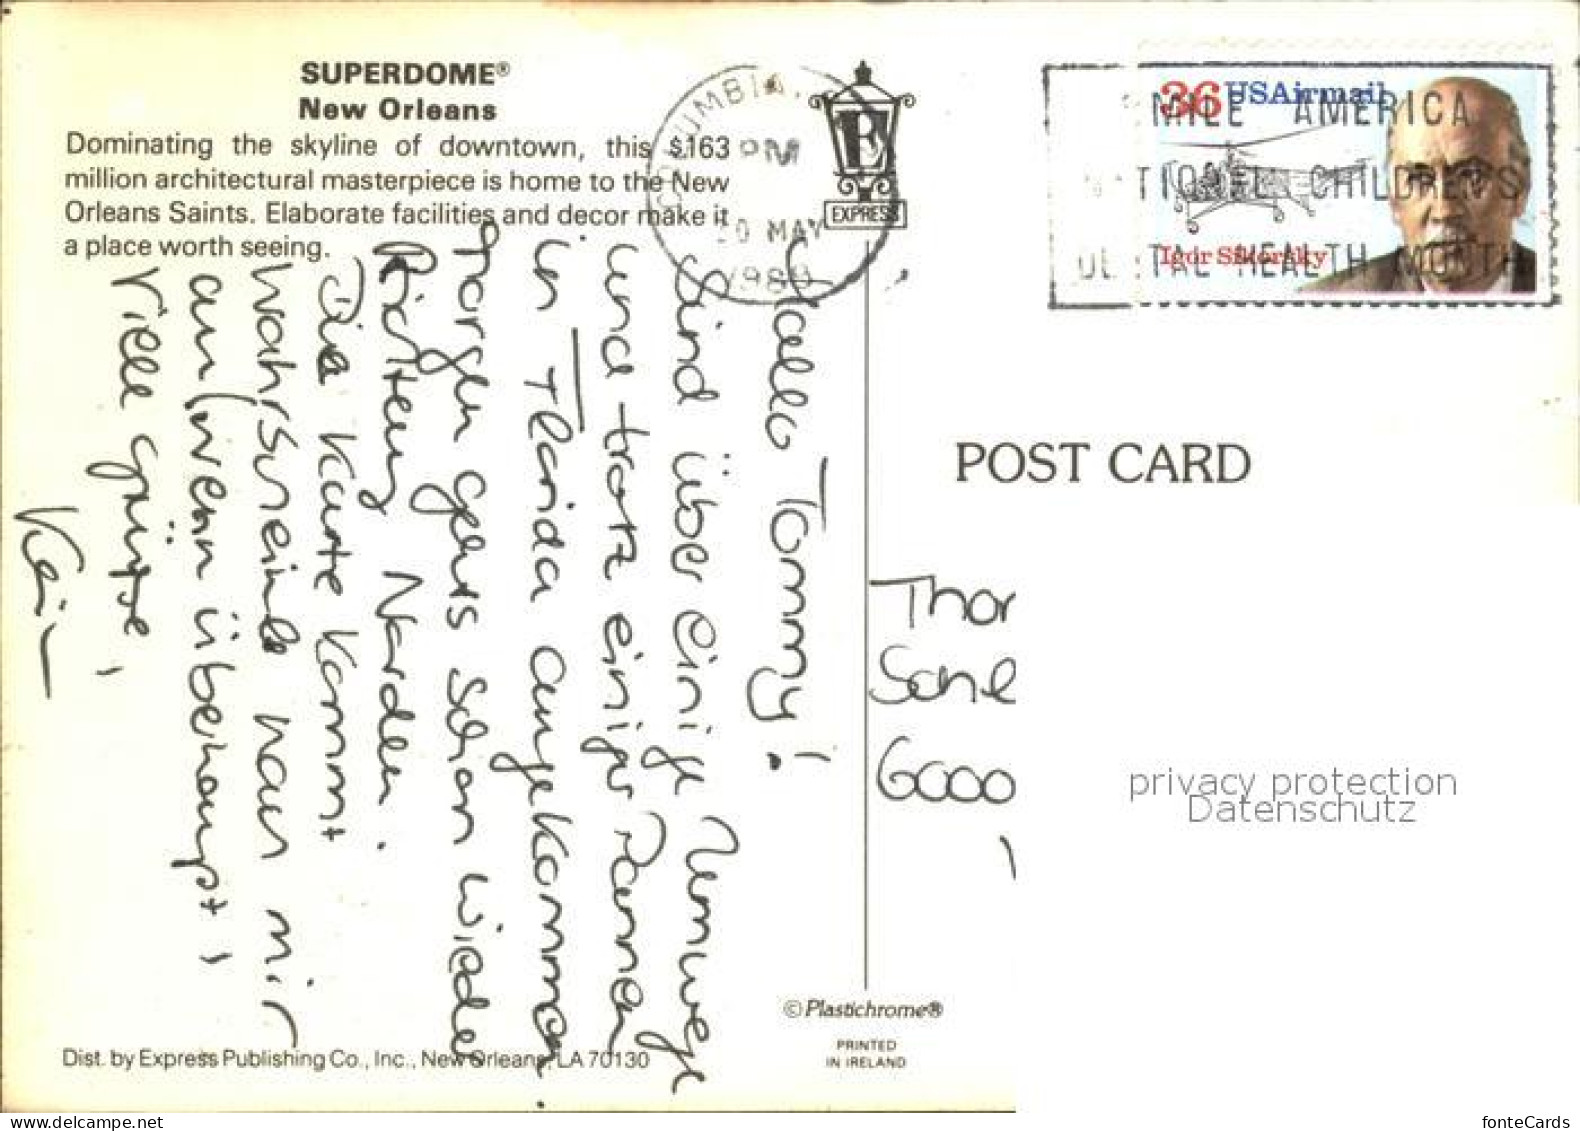 SUPERDOME®
New Orleans
Dominating the skyline of downtown, this $163
million architectural masterpiece is home to the New
Orleans Saints. Elaborate facilities and decor make it
a place worth seeing.
UMBIA,
PM
MAY
1988
E
EXPRESS
36 USAirmail
Igor Sikorsky
MILE AMERICA
NATIONAL CHILDREN'S
DENTAL HEALTH MONTH
Hallo Tommy!
Sind über einige Umwege
und trotz einiger Pannen
in Florida angekommen.
Morgen gehts schon wieder
Richtung Norden.
Die Karte kommt
wahrscheinl. nach mir
an (wenn überhaupt),
Viele Grüße,
POST CARD
Thor
Schl
6000
privacy protection
Datenschutz
©Plastichrome®
PRINTED
IN IRELAND
Dist. by Express Publishing Co., Inc., New Orleans, LA 70130
www.delcampe.net
fonteCards